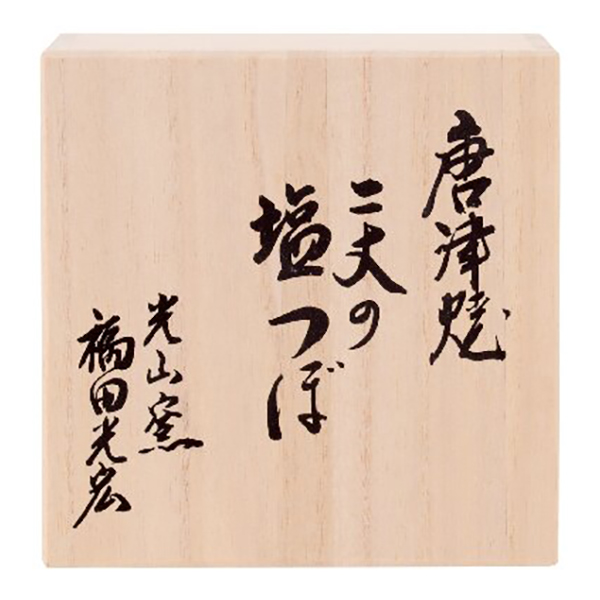 唐津焼
二丈の
塩つぼ
光山窯
福田光宏